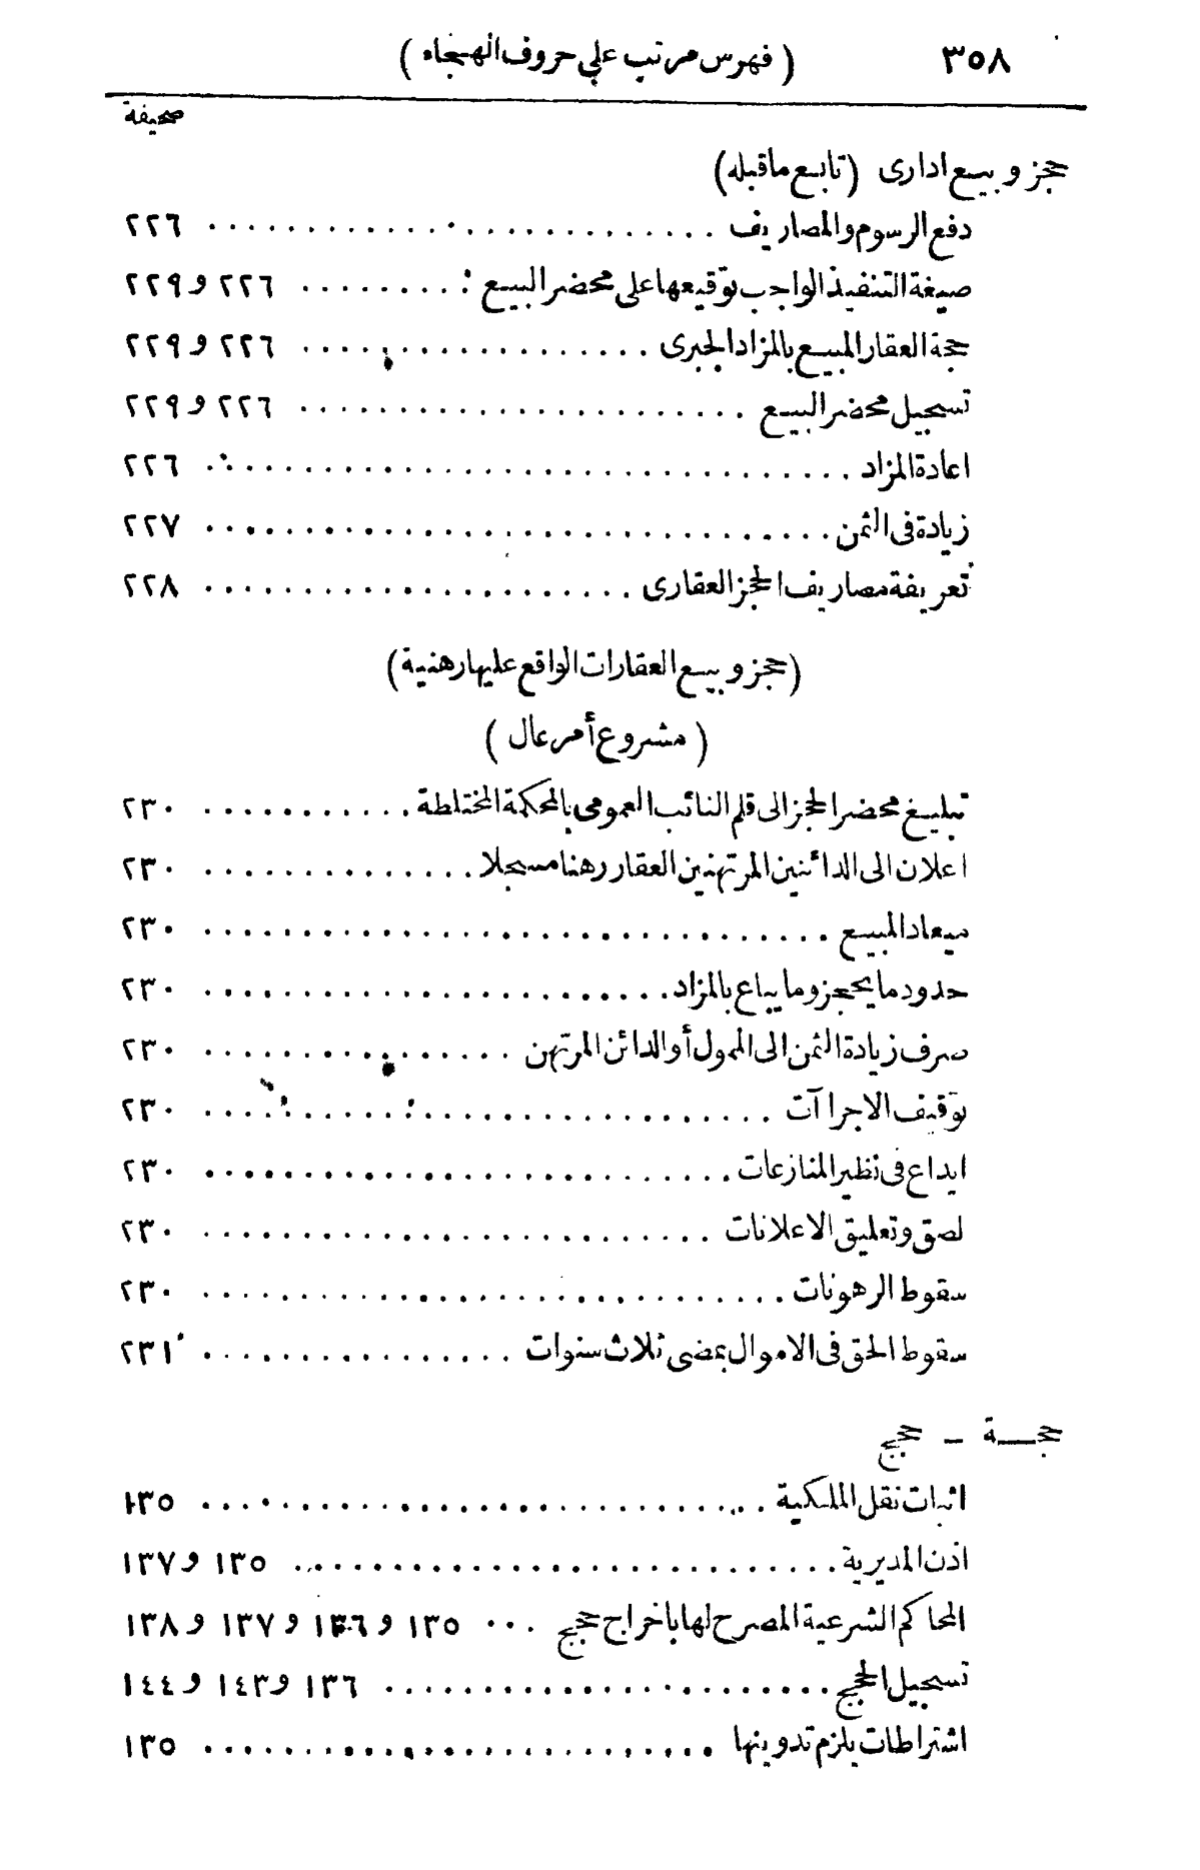 ٣٥٨ ( فهرس مرتب على حروف الهجاء )
صحيفة
حجز وبيع ادارى ( تابع ماقبله )
دفع الرسوم والمصاريف ........ ٢٢٦
صيغة التنفيذ الواجب توقيعها على محضر البيع ........ ٢٢٦ و ٢٢٩
حجة العقار المبيع بالمزاد الجبرى ........ ٢٢٦ و ٢٢٩
تسجيل محضر البيع ........ ٢٢٦ و ٢٢٩
اعادة المزاد ........ ٢٢٦
زيادة فى الثمن ........ ٢٢٧
تعريفة مصاريف الحجز العقارى ........ ٢٢٨
( حجز وبيع العقارات الواقع عليها رهنية )
( مشروع أمر عال )
تبليغ محضر الحجز الى قلم النائب العمومى بالمحكمة المختلطة ........ ٢٣٠
اعلان الى الدائنين المرتهنين العقار رهنا مسجلا ........ ٢٣٠
ميعاد المبيع ........ ٢٣٠
حدود ما يحجز وما يباع بالمزاد ........ ٢٣٠
صرف زيادة الثمن الى الممول أو الدائن المرتهن ........ ٢٣٠
توقيف الاجراآت ........ ٢٣٠
ايداع فى نظير المنازعات ........ ٢٣٠
لصق وتعليق الاعلانات ........ ٢٣٠
سقوط الرهونات ........ ٢٣٠
سقوط الحق فى الاموال بمضى ثلاث سنوات ........ ٢٣١
حجة - حجج
اثبات نقل الملكية ........ ١٣٥
اذن المديرية ........ ١٣٥ و ١٣٧
المحاكم الشرعية المصرح لها باخراج حجج ... ١٣٥ و ١٣٦ و ١٣٧ و ١٣٨
تسجيل الحجج ........ ١٣٦ و ١٤٣ و ١٤٤
اشتراطات يلزم تدوينها ........ ١٣٥